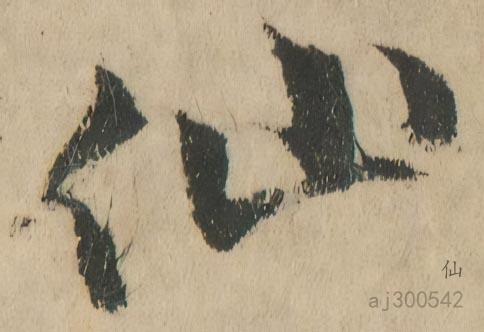 仙
仙
aj300542